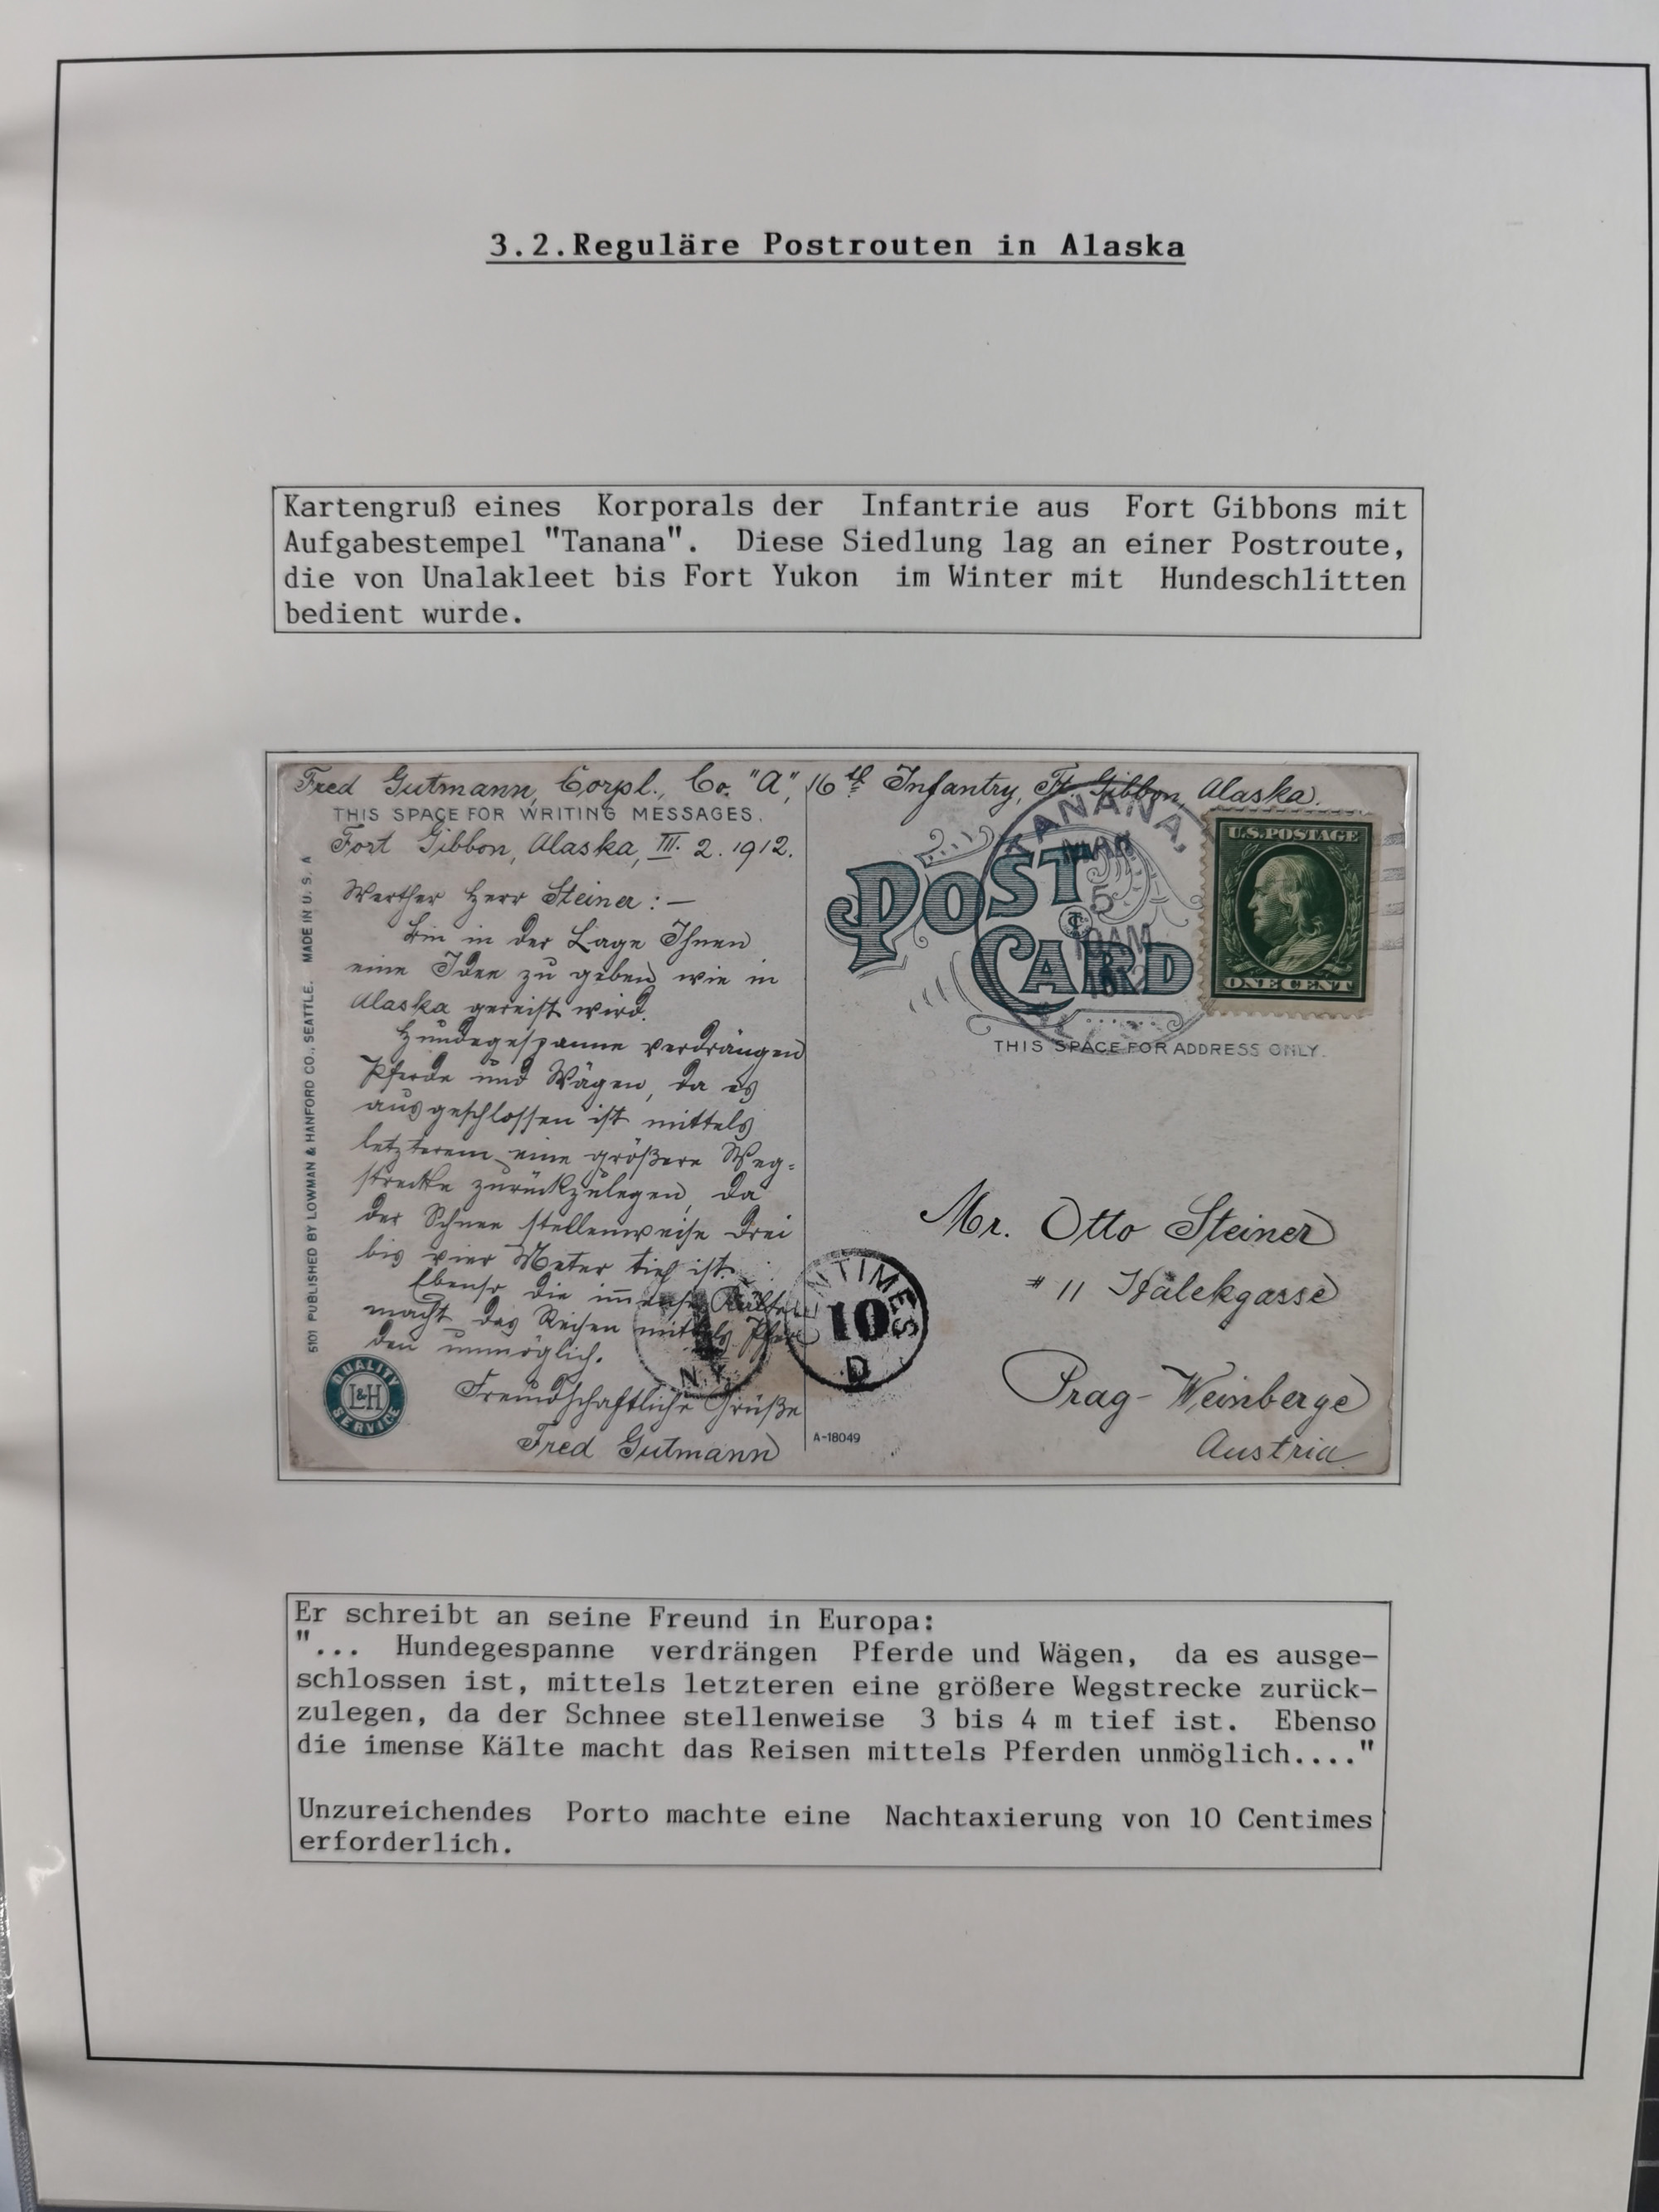 3.2.Reguläre Postrouten in Alaska
Kartengruß eines Korporals der Infantrie aus Fort Gibbons mit
Aufgabestempel "Tanana". Diese Siedlung lag an einer Postroute,
die von Unalakleet bis Fort Yukon im Winter mit Hundeschlitten
bedient wurde.
Fred Gutmann, Corpl., Co. "A", 16th Infantry, Ft. Gibbon, Alaska.
THIS SPACE FOR WRITING MESSAGES.
Fort Gibbon, Alaska, III. 2. 1912.
Werther Herr Steiner : —
Bin in der Lage Ihnen
eine Idee zu geben wie in
Alaska gereist wird.
Hundegespanne verdrängen
Pferde und Wägen, da es
ausgeschlossen ist mittels
letzterem eine größere Weg=
strecke zurückzulegen, da
der Schnee stellenweise drei
bis vier Meter tief ist.
Ebenso die immense Kälte
macht das Reisen mittels Pfer
den unmöglich.
Freundschaftliche Grüße
Fred Gutmann
5101 PUBLISHED BY LOWMAN & HANFORD CO., SEATTLE. MADE IN U. S. A
QUALITY
L&H
SERVICE
POST
CARD
TANANA,
MAR
5
10AM
1912
U.S.POSTAGE
ONE CENT
THIS SPACE FOR ADDRESS ONLY.
Mr. Otto Steiner
# 11 Hálekgasse
Prag-Weinberge
Austria
N.Y.
CENTIMES
10
D
A-18049
Er schreibt an seine Freund in Europa:
"... Hundegespanne verdrängen Pferde und Wägen, da es ausge-
schlossen ist, mittels letzteren eine größere Wegstrecke zurück-
zulegen, da der Schnee stellenweise 3 bis 4 m tief ist. Ebenso
die imense Kälte macht das Reisen mittels Pferden unmöglich...."
Unzureichendes Porto machte eine Nachtaxierung von 10 Centimes
erforderlich.